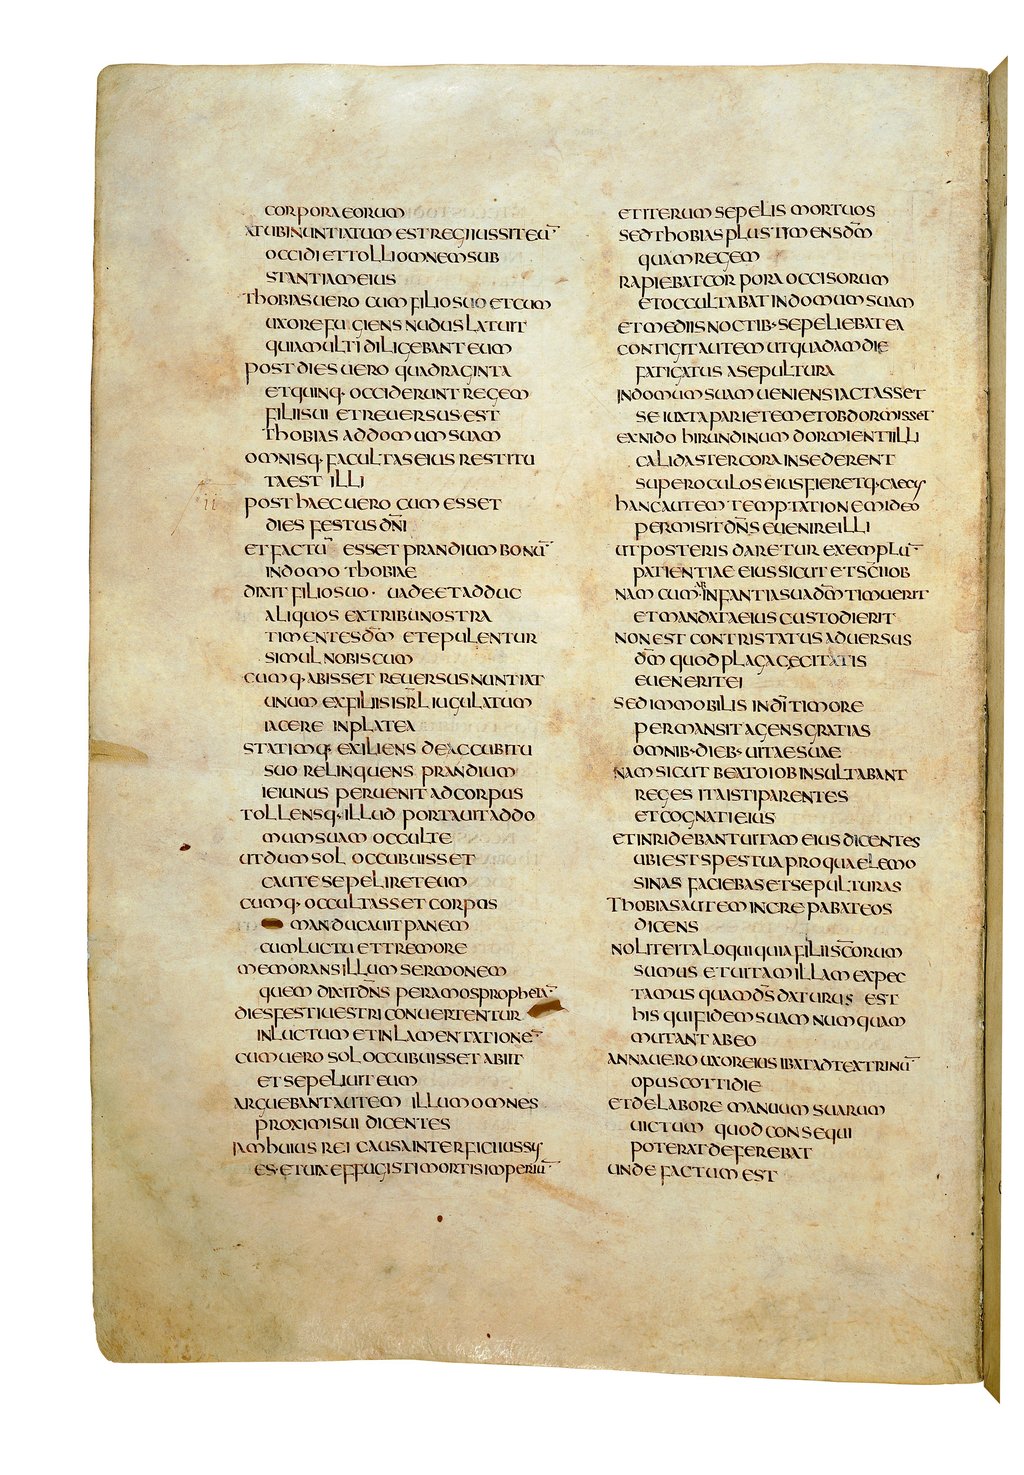 corpora eorum
at ubi nuntiatum est regi iussit eū
occidi et tolli omnem sub
stantiam eius
thobias uero cum filio suo et cum
uxore fugiens nudus latuit
quia multi diligebant eum
post dies uero quadraginta
et quinq· occiderunt regem
filii sui et reuersus est
thobias ad domum suam
omnisq· facultas eius restitu
ta est illi
ii
post haec uero cum esset
dies festus dn̄i
et factū esset prandium bonū
in domo thobiae
dixit filio suo · uade et adduc
aliquos ex tribu nostra
timentes dm̄ et epulentur
simul nobiscum
cumq· abisset reuersus nuntiat
unum ex filiis isrl̄ iugulatum
iacere in platea
statimq· exiliens de accubitu
suo relinquens prandium
ieiunus peruenit ad corpus
tollensq· illud portauit ad do
mum suam occulte
ut dum sol occubuisset
caute sepeliret eum
cumq· occultasset corpus
manducauit panem
cum luctu et tremore
memorans illum sermonem
quem dixit dn̄s per amos prophetā
dies festi uestri conuertentur
in luctum et in lamentationē
cum uero sol occubuisset abiit
et sepeliuit eum
arguebant autem illum omnes
proximi sui dicentes
iam huius rei causa interfici iussus
es · et uix effugisti mortis imperiū
et iterum sepelis mortuos
sed thobias plus timens dm̄
quam regem
rapiebat corpora occisorum
et occultabat in domum suam
et mediis noctib· sepeliebat ea
contigit autem ut quadam die
fatigatus a sepultura
in domum suam ueniens iactasset
se iuxta parietem et obdormisset
ex nido hirundinum dormienti illi
calida stercora insederent
super oculos eius fieretq· caecus
hanc autem temptationem ideo
permisit dn̄s euenire illi
ut posteris daretur exemplū
patientiae eius sicut et sc̄i iob
nam cum ab infantia sua dm̄ timuerit
et mandata eius custodierit
non est contristatus aduersus
dm̄ quod plaga cecitatis
euenerit ei
sed immobilis in dī timore
permansit agens gratias
omnib· dieb· uitae suae
nam sicut beato iob insultabant
reges ita isti parentes
et cognati eius
et inridebant uitam eius dicentes
ubi est spes tua pro qua elemo
sinas faciebas et sepulturas
thobias autem increpabat eos
dicens
nolite ita loqui quia filii sc̄orum
sumus et uitam illam expec
tamus quam ds̄ daturus est
his qui fidem suam numquam
mutant ab eo
anna uero uxor eius ibat ad textrinū
opus cottidie
et de labore manuum suarum
uictum quod consequi
poterat deferebat
unde factum est